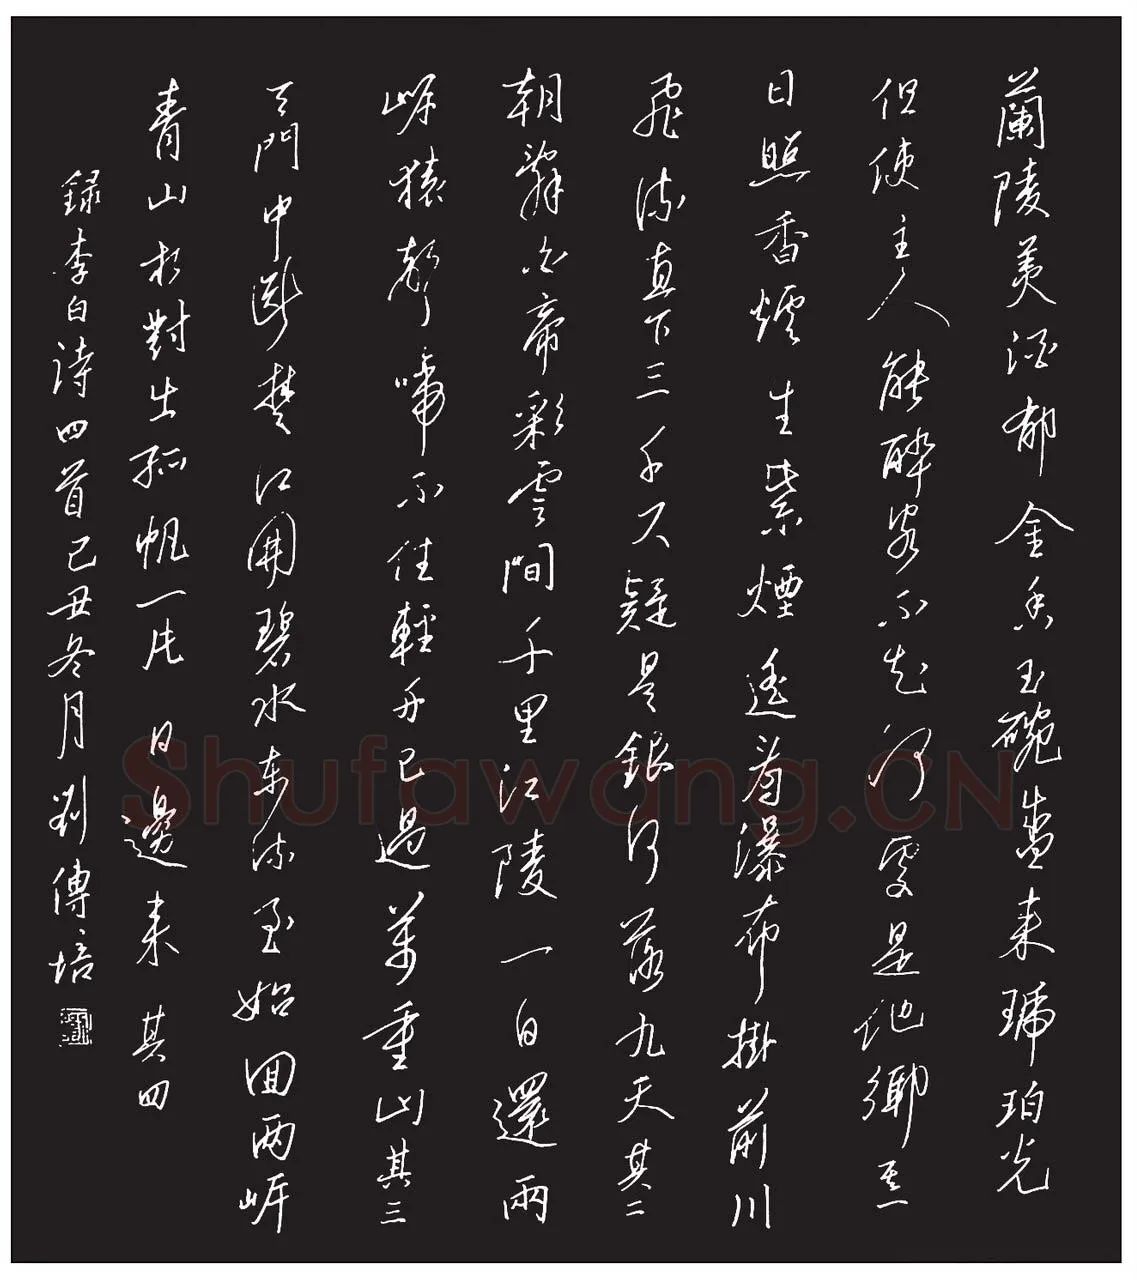 蘭陵美酒郁金香玉碗盛来琥珀光
但使主人能醉客不知何處是他鄉其一
日照香爐生紫煙遙看瀑布掛前川
飛流直下三千尺疑是銀河落九天其二
朝辭白帝彩雲間千里江陵一日還兩
岸猿聲啼不住輕舟已過萬重山其三
天門中斷楚江開碧水东流至始回两岸
青山相對出孤帆一片日邊来其四
録李白詩四首己丑冬月劉傳培
Shufawang.CN